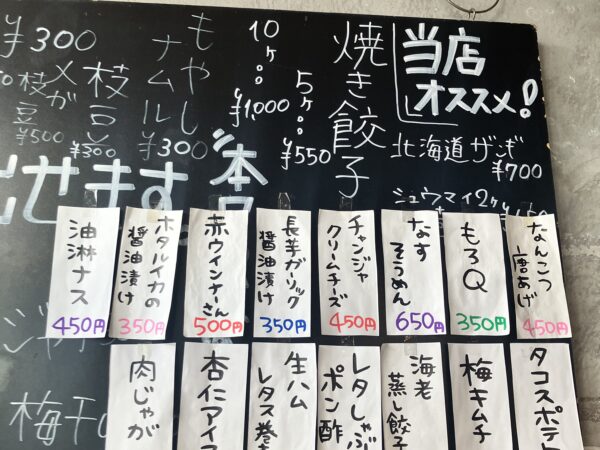 当店
オススメ!
北海道ザンギ
¥700
シュウマイ2ヶ
焼き餃子
5ヶ
¥550
10ヶ
¥1,000
もやし
ナムル
¥300
枝豆
¥300
メガ
枝豆
¥500
¥300
せます
なんこつ
唐あげ
450円
もろQ
350円
なす
そうめん
650円
チャンジャ
クリームチーズ
450円
長芋ガーリック
醤油漬け
350円
赤ウインナーさん
500円
ホタルイカの
醤油漬け
350円
油淋ナス
450円
タコスポテト
梅キムチ
海老
蒸し餃子
レタしゃぶ
ポン酢
生ハム
レタス巻き
杏仁アイス
肉じゃが
梅干